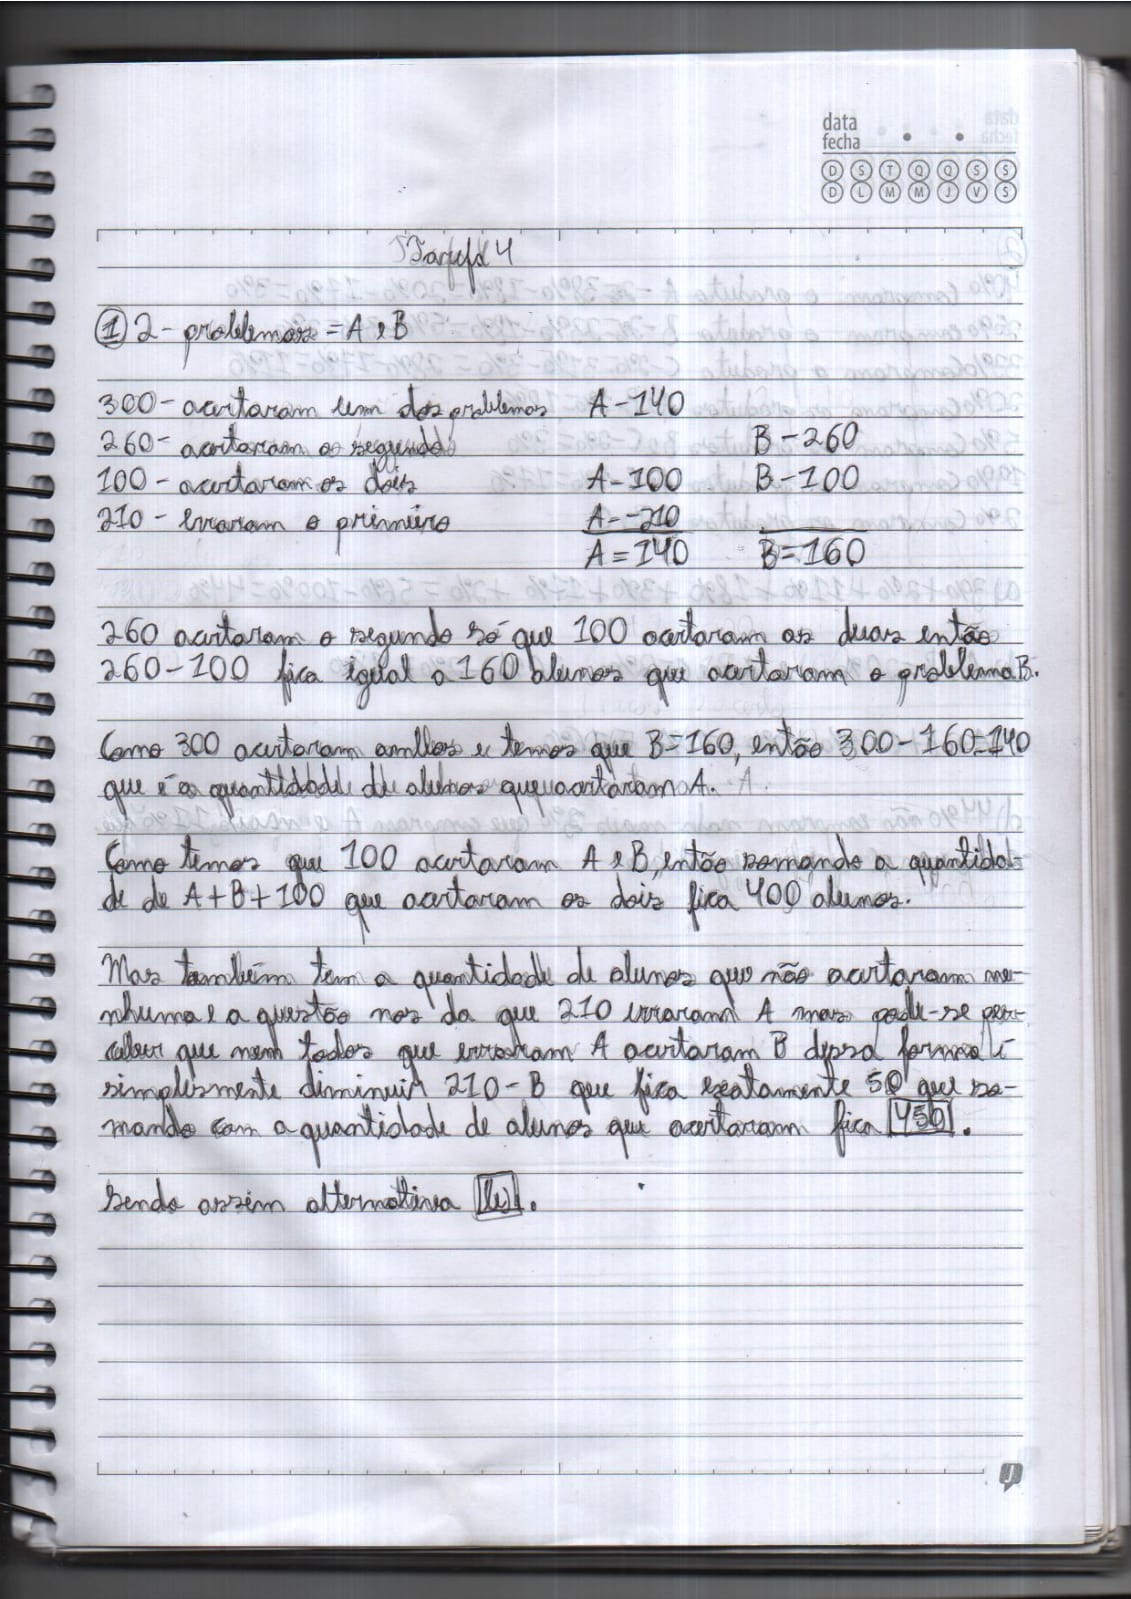 data
fecha
D S T Q Q S S
D L M M J V S
Tarefa 4
1 2- problemas = A e B
300- acertaram um dos problemas A-140
260- acertaram o segundo B-260
100- acertaram os dois A-100 B-100
210- erraram o primeiro A--210
A=140 B=160
260 acertaram o segundo só que 100 acertaram as duas então
260-100 fica igual a 160 alunos que acertaram o problema B.
Como 300 acertaram ambos e temos que B=160, então 300-160=140
que é a quantidade de alunos que acertaram A.
Como temos que 100 acertaram A e B, então somando a quantida-
de de A+B+100 que acertaram os dois fica 400 alunos.
Mas também tem a quantidade de alunos que não acertaram ne-
nhuma e a questão nos da que 210 erraram A mas pode-se per-
ceber que nem todos que erraram A acertaram B dessa forma é
simplesmente diminuir 210-B que fica exatamente 50 que so-
mando com a quantidade de alunos que acertaram fica 450.
sendo assim alternativa
J